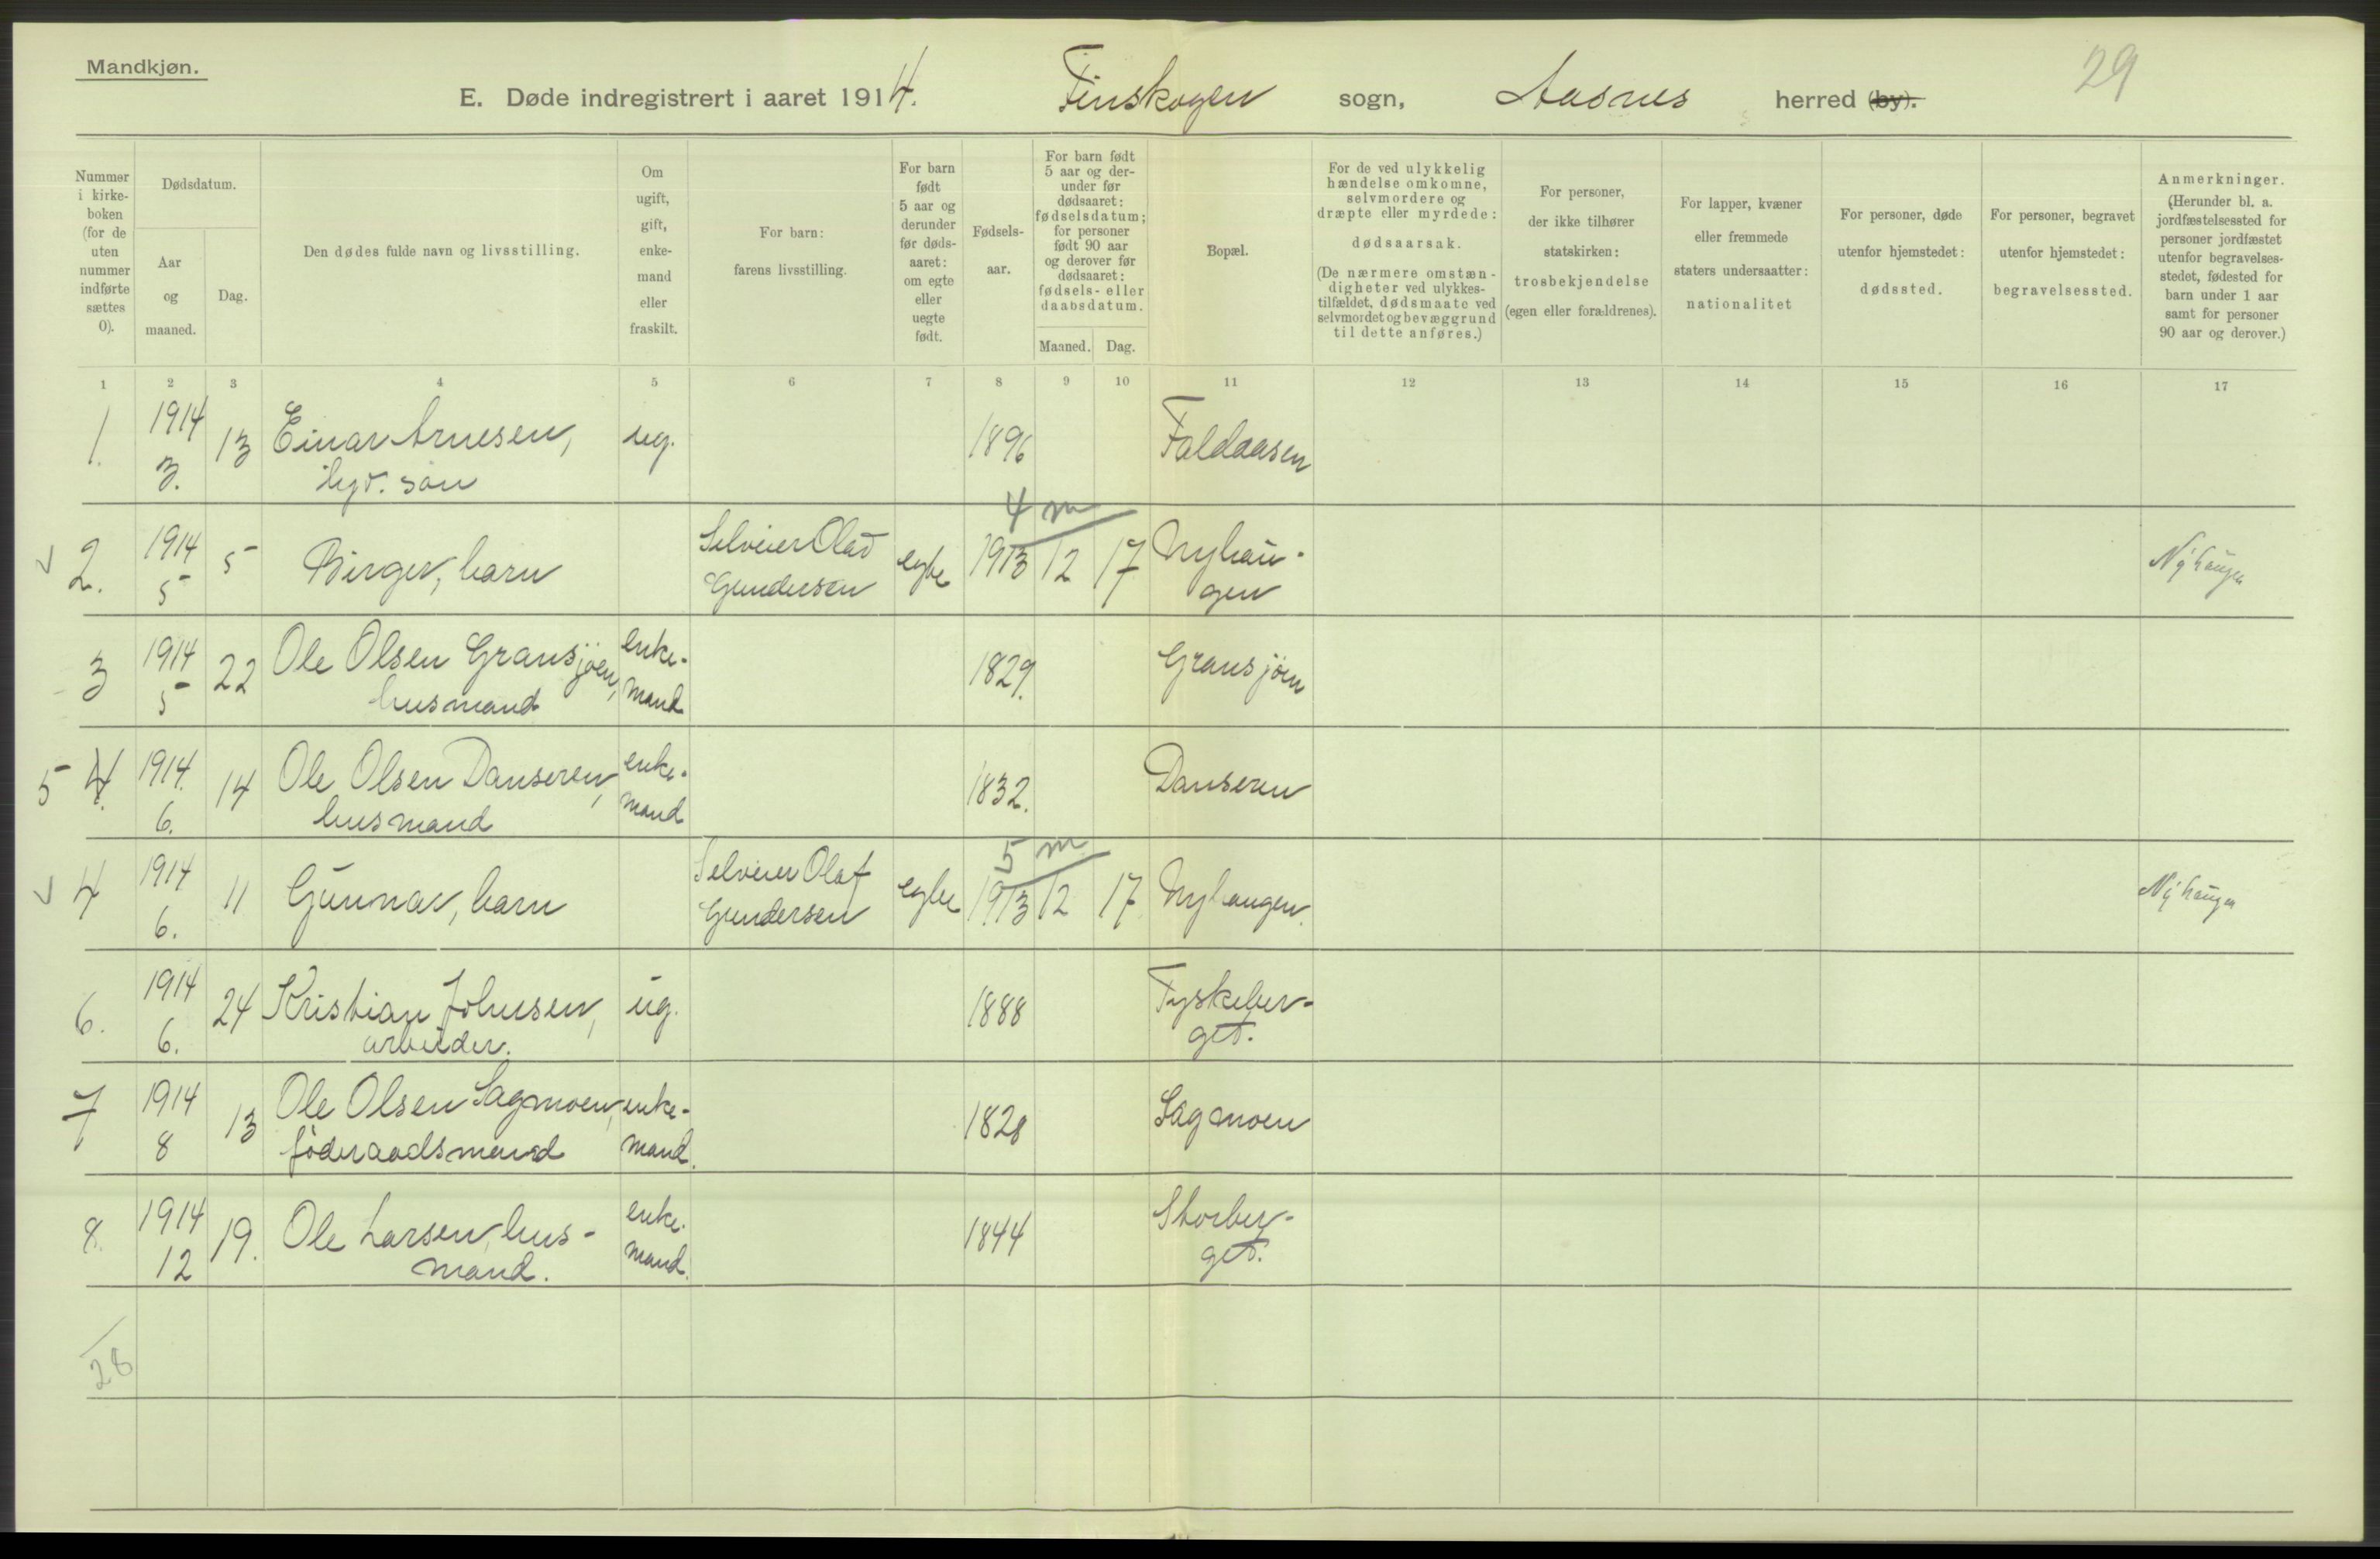 Mandkjøn.
29
E. Døde indregistrert i aaret 1914. Finskogen sogn, Aasnes herred (by).
Nummer i kirkeboken (for de uten nummer indførte sættes 0).
Dødsdatum.
Aar og maaned.
Dag.
Den dødes fulde navn og livsstilling.
Om ugift, gift, enkemand eller fraskilt.
For barn: farens livsstilling.
For barn født 5 aar og derunder før dødsaaret: om egte eller uegte født.
Fødselsaar.
For barn født 5 aar og derunder før dødsaaret: fødselsdatum; for personer født 90 aar og derover før dødsaaret: fødsels- eller daabsdatum.
Maaned. Dag.
Bopæl.
For de ved ulykkelig hændelse omkomne, selvmordere og dræpte eller myrdede: dødsaarsak.
(De nærmere omstændigheter ved ulykkestilfældet, dødsmaate ved selvmordet og bevæggrund til dette anføres.)
For personer, der ikke tilhører statskirken: trosbekjendelse (egen eller forældrenes).
For lapper, kvæner eller fremmede staters undersaatter: nationalitet
For personer, døde utenfor hjemstedet: dødssted.
For personer, begravet utenfor hjemstedet: begravelsessted.
Anmerkninger.
(Herunder bl. a. jordfæstelsessted for personer jordfæstet utenfor begravelsesstedet, fødested for barn under 1 aar samt for personer 90 aar og derover.)
1 2 3 4 5 6 7 8 9 10 11 12 13 14 15 16 17
1. 1914 3. 13 Einar Arnesen, ug. 1896 Faldaasen
søn
4 m
2. 1914 5 5 Birger, barn Selveier Olav Gundersen egte 1913 12 17 Nyhaugen Nyhaugen
3 1914 5 22 Ole Olsen Gransjøen, husmand enkemand 1829. Gransjøen
5 4. 1914. 6. 14 Ole Olsen Danseren, husmand enkemand 1832. Danseren
5 m
4 1914 6. 11 Gunnar, barn Selveier Olaf Gundersen egte 1913 12 17 Nyhaugen. Nyhaugen
6. 1914 6. 24 Kristian Johnsen, arbeider. ug. 1888 Tyskeberget.
7 1914 8 13 Ole Olsen Sagmoen, føderaadsmand enkemand. 1828 Sagmoen
8. 1914 12 19. Ole Larsen, husmand. enkemand. 1844 Storberget.
28